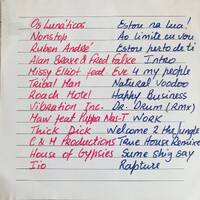 Os Lunáticos Estou na lua!
Nonstop Ao limite eu vou
Ruben André Estou perto de ti
Alan Braxe & Fred Falke Intro
Missy Elliot feat. Eve 4 my people
Tribal Man Natural Voodoo
Roach Motel Happy Business
Vibration Inc. Dr. Drum (Rmx)
Maw feat Puppa Nas-T Work
Thick Dick Welcome 2 the Jungle
C & M Productions True House Remixes
House of Gypsies Sume shig say
Iio Rapture